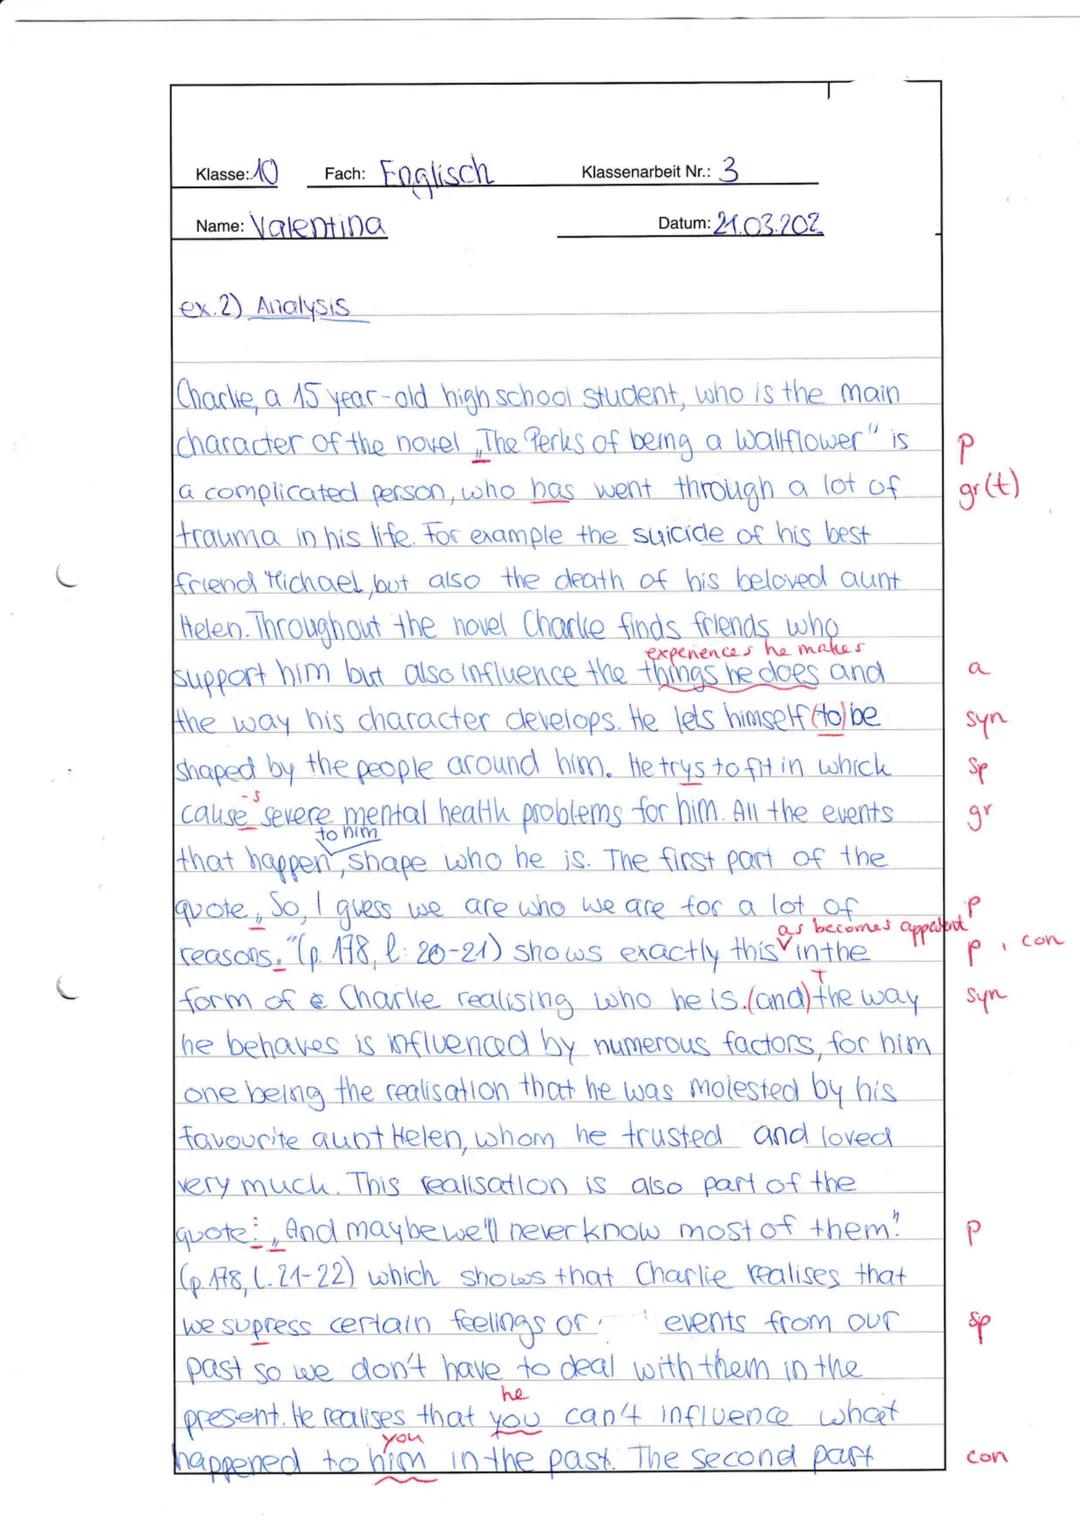 Klasse: 10 Fach: Englisch Klassenarbeit Nr.: 3
Name: Valentina Datum: 21.03.202
ex.2) Analysis
Charlie, a 15 year-old high school student, who is the main
character of the novel „The Perks of being a Wallflower" is p
a complicated person, who has went through a lot of gr(t)
trauma in his life. For example the suicide of his best
friend Michael, but also the death of his beloved aunt
Helen. Throughout the novel Charlie finds friends who
experiences he makes
support him but also influence the things he does and a
the way his character develops. He lets himself (to) be syn
shaped by the people around him. He trys to fit in which sp
-s
cause severe mental health problems for him. All the events gr
to him
that happen, shape who he is. The first part of the
quote „So, I guess we are who we are for a lot of p
as becomes apparent
reasons." (p. 178, l: 20-21) shows exactly this in the p, con
T
form of Charlie realising who he is. (and) the way syn
he behaves is influenced by numerous factors, for him
one being the realisation that he was molested by his
favourite aunt Helen, whom he trusted and loved
very much. This realisation is also part of the
quote: „And maybe we'll never know most of them." p
(p. 178, l. 21-22) which shows that Charlie realises that
we supress certain feelings or events from our sp
past so we don't have to deal with them in the
he
present. He realises that you can't influence what
you
happened to him in the past. The second part con